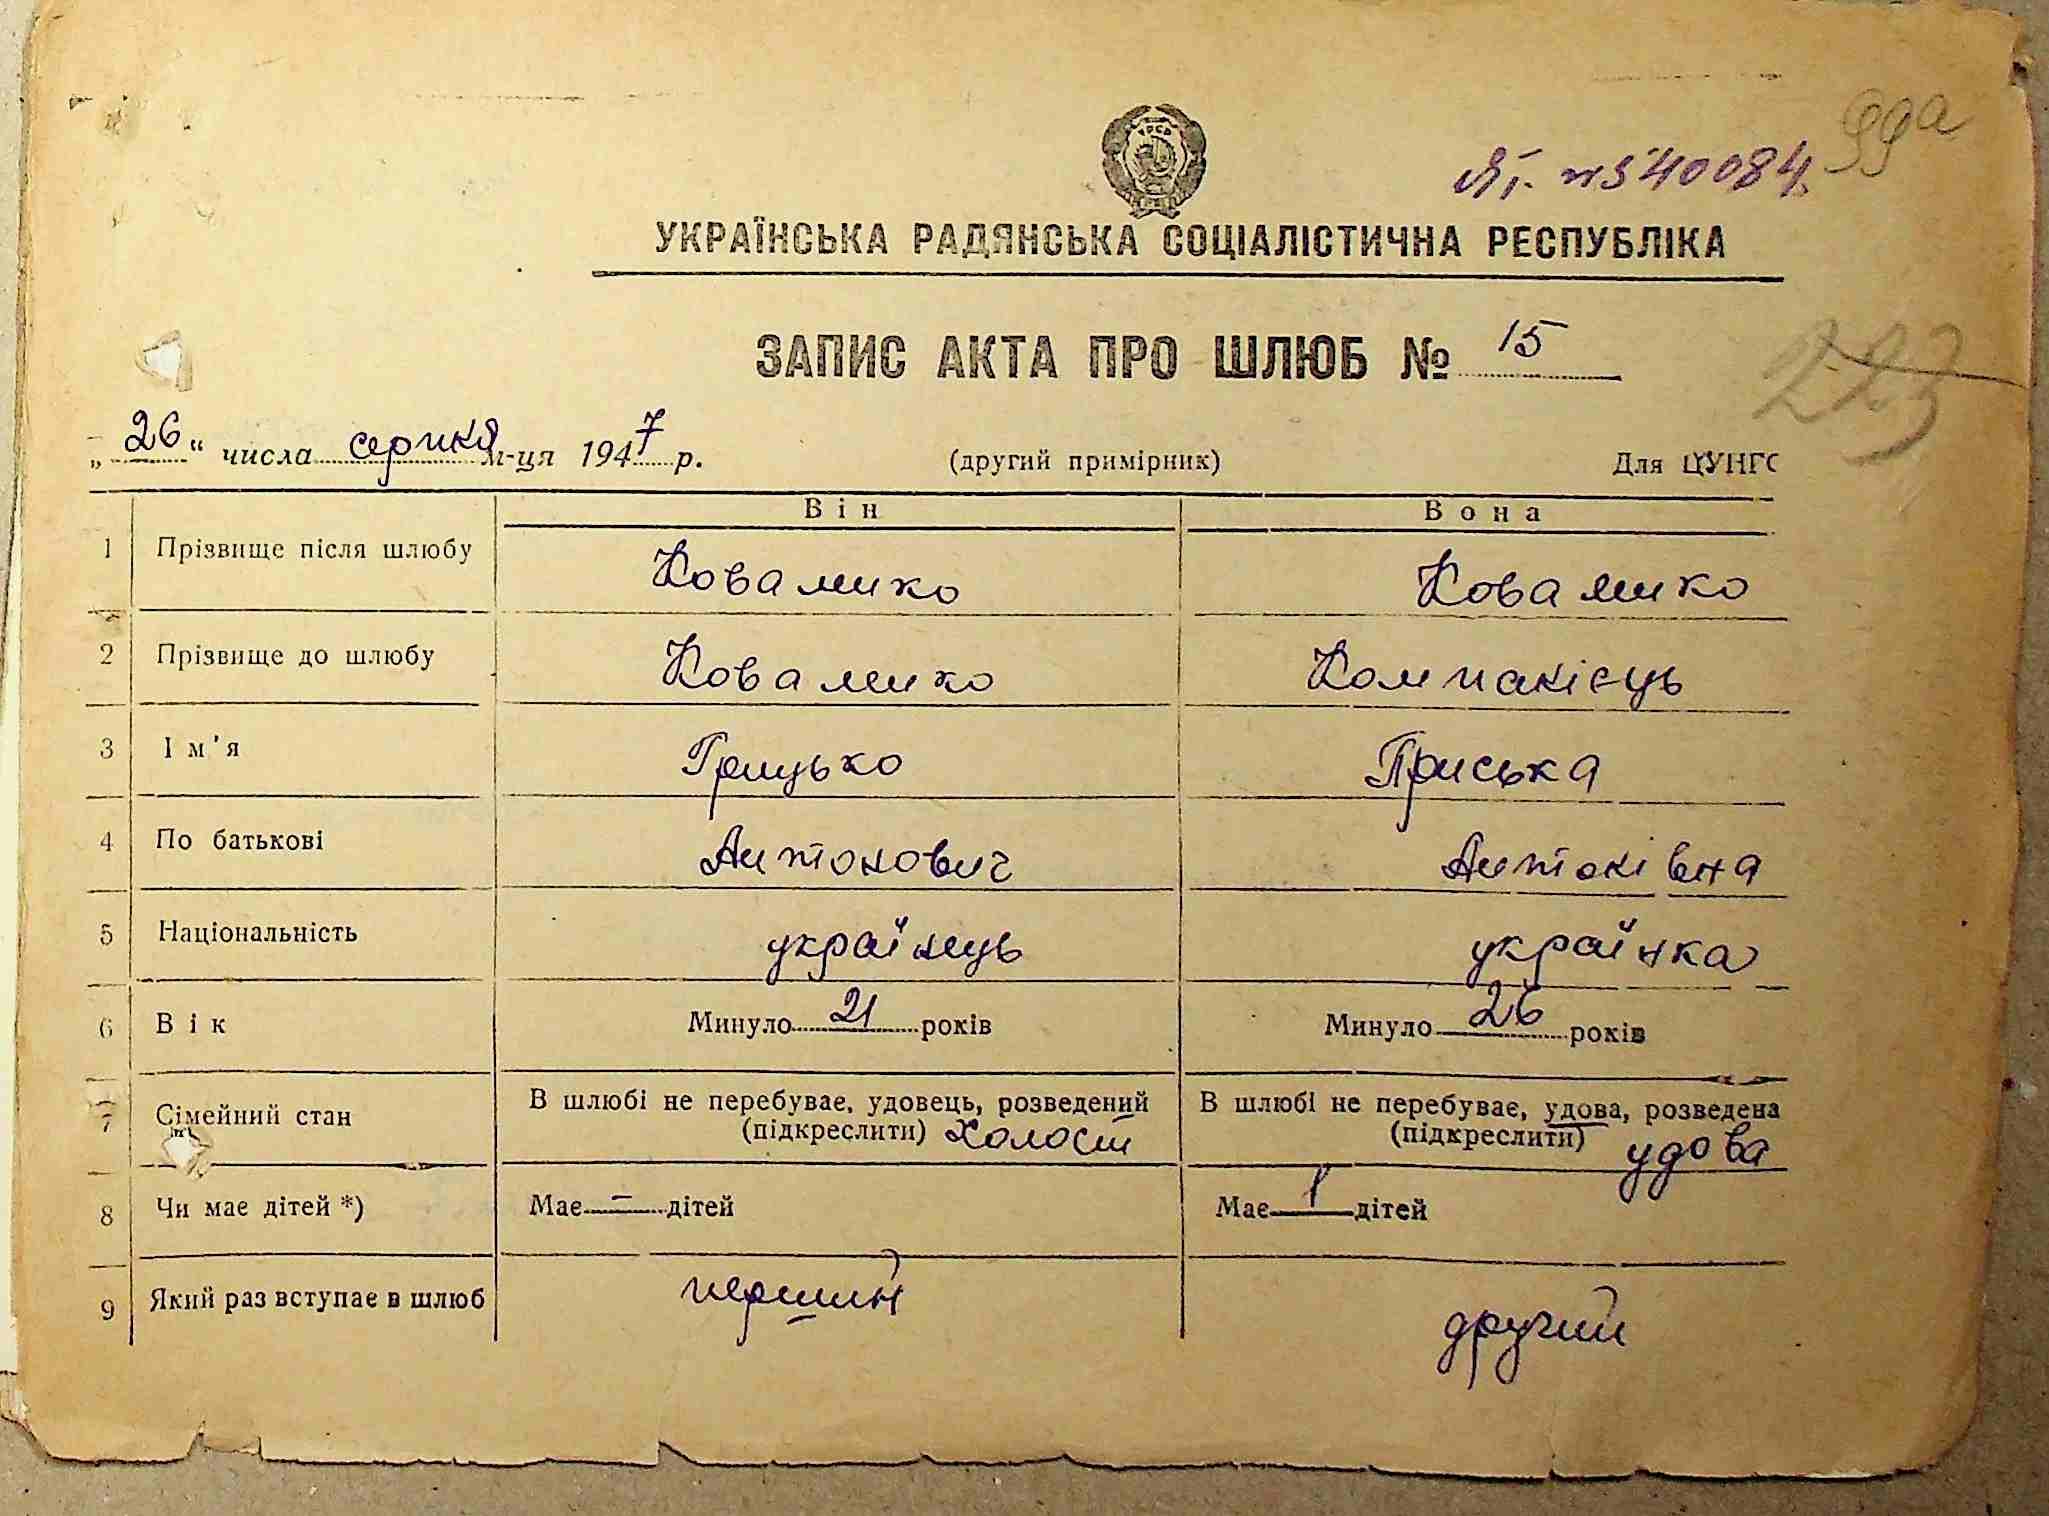 99а
ЯГ. № 340084.
УКРАЇНСЬКА РАДЯНСЬКА СОЦІАЛІСТИЧНА РЕСПУБЛІКА
ЗАПИС АКТА ПРО ШЛЮБ № 15
223
„26“ числа серпня м-ця 1947 р. (другий примірник) Для ЦУНГС
Він Вона
1 Прізвище після шлюбу Коваленко Коваленко
2 Прізвище до шлюбу Коваленко Компанієць
3 Ім'я Грицько Приська
4 По батькові Антонович Антонівна
5 Національність українець українка
6 Вік Минуло 21 років Минуло 26 років
7 Сімейний стан В шлюбі не перебуває, удовець, розведений (підкреслити) холост В шлюбі не перебуває, удова, розведена (підкреслити) удова
8 Чи має дітей *) Має — дітей Має 1 дітей
9 Який раз вступає в шлюб перший другий